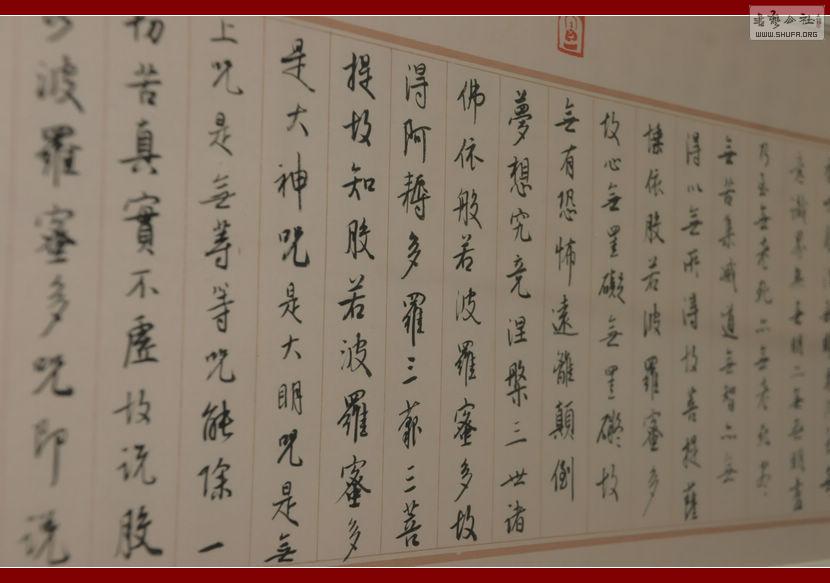 意識界無無明亦無無明盡
乃至無老死亦無老死盡
無苦集滅道無智亦無
得以無所得故菩提薩
埵依般若波羅蜜多
故心無罣礙無罣礙故
無有恐怖遠離顛倒
夢想究竟涅槃三世諸
佛依般若波羅蜜多故
得阿耨多羅三藐三菩
提故知般若波羅蜜多
是大神咒是大明咒是無
上咒是無等等咒能除一
切苦真實不虛故説般
若波羅蜜多咒即説
書藝公社
WWW.SHUFA.ORG